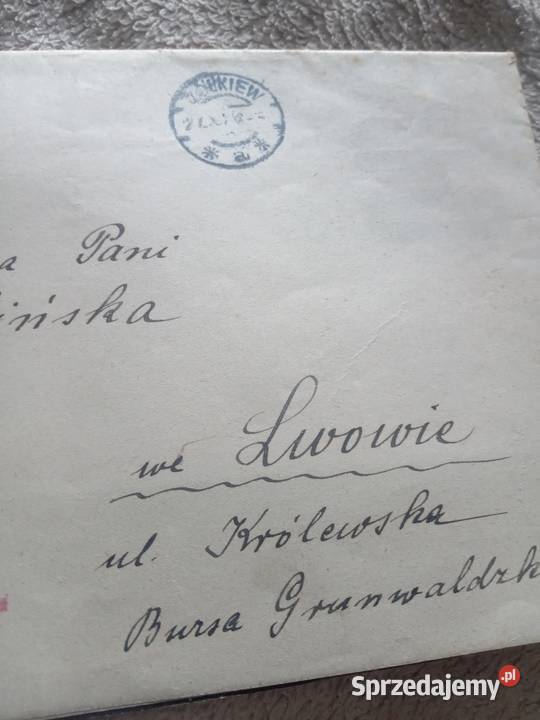 a Pani
ińska
we Lwowie
ul. Królewska
Bursa Grunwaldzk
Sprzedajemy.pl